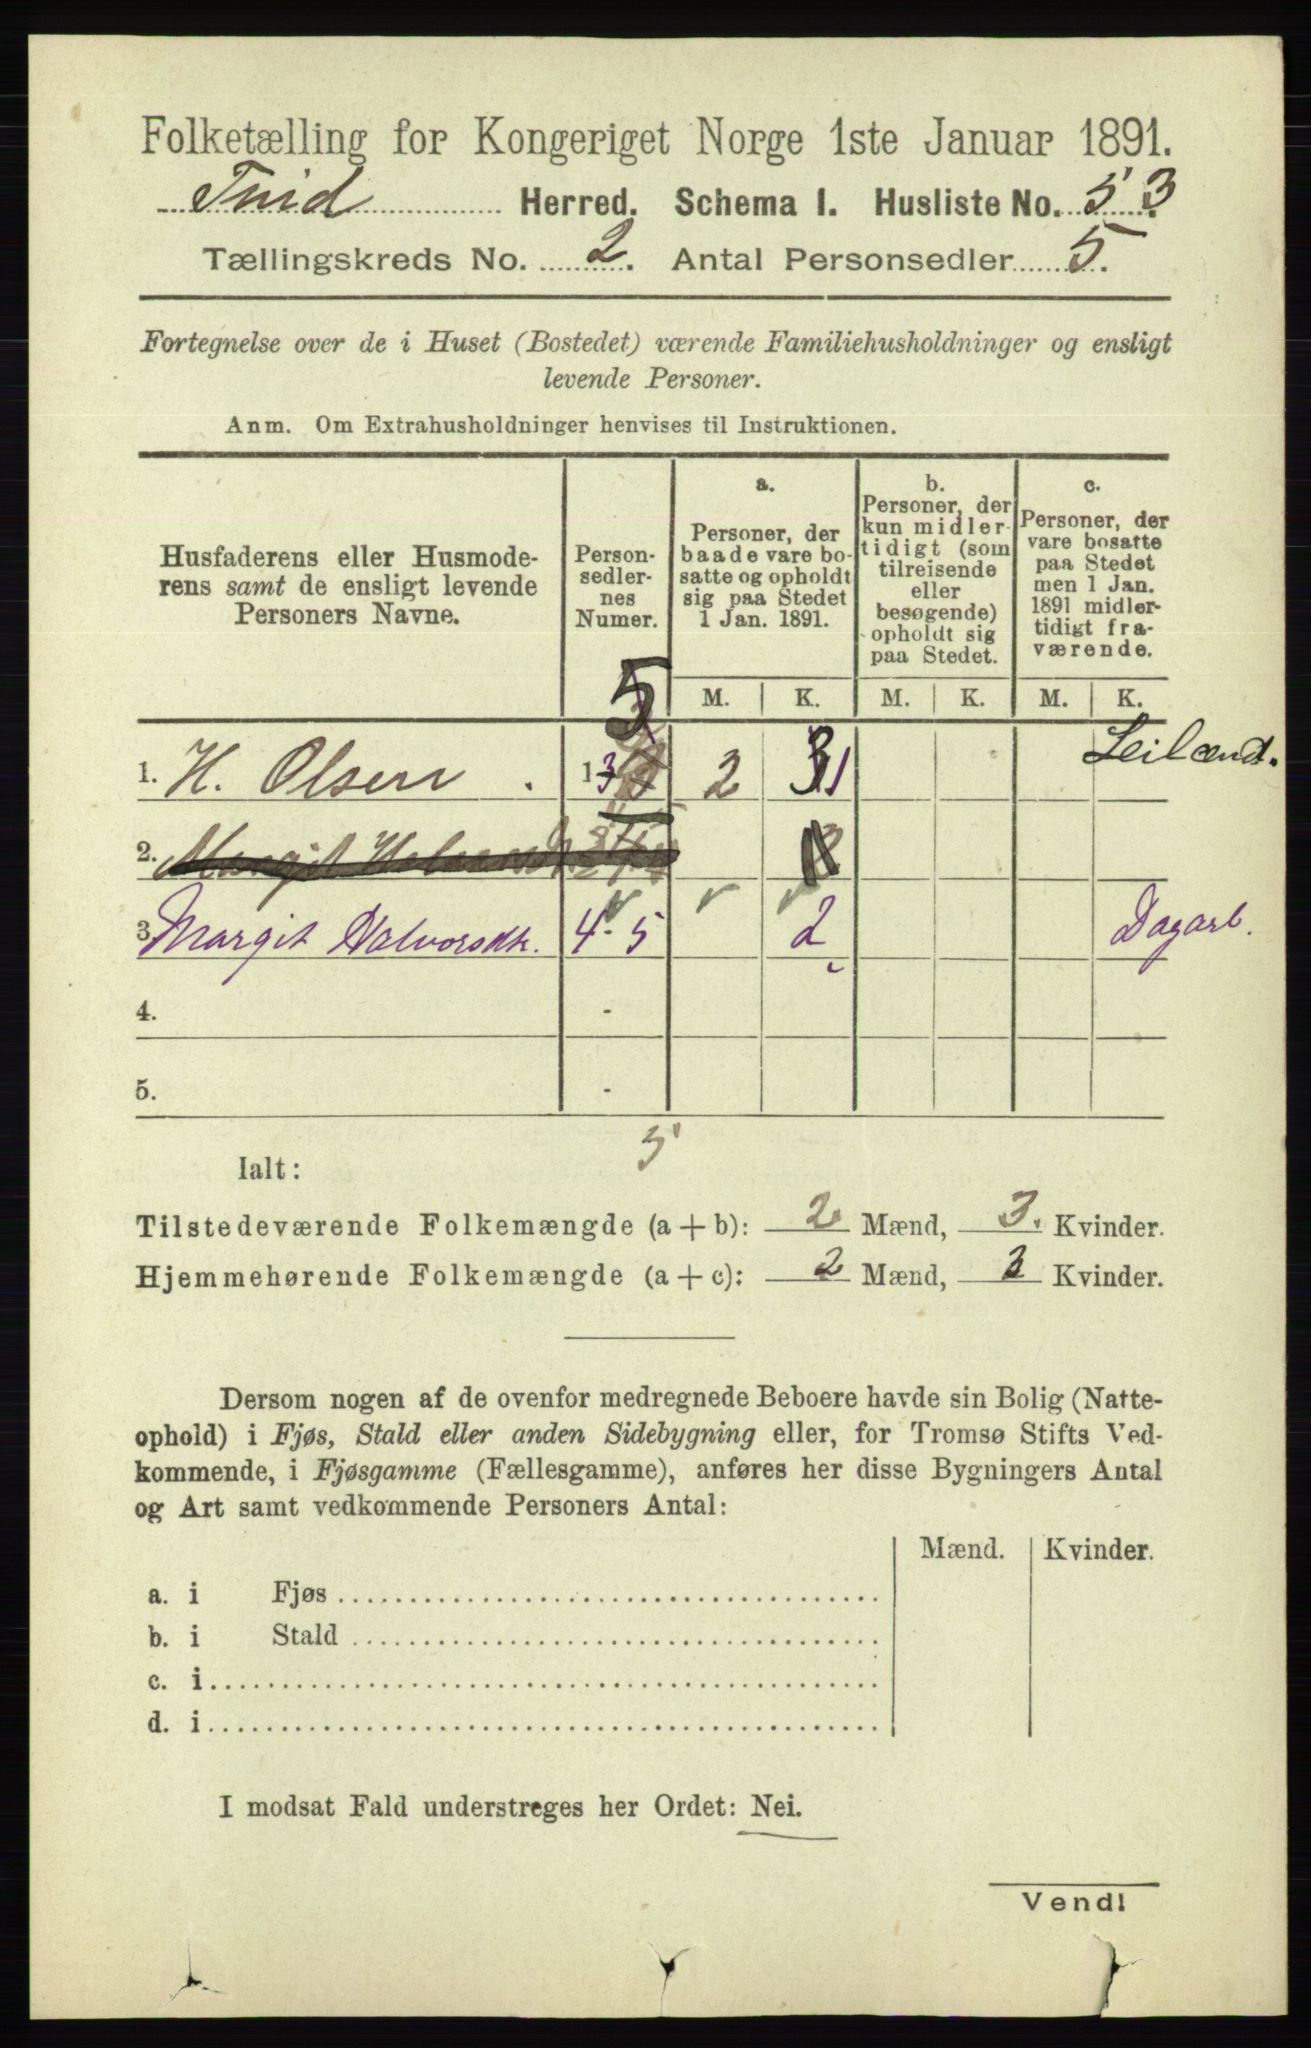 Folketælling for Kongeriget Norge 1ste Januar 1891.
Tuid Herred. Schema I. Husliste No. 53
Tællingskreds No. 2. Antal Personsedler 5.
Fortegnelse over de i Huset (Bostedet) værende Familiehusholdninger og ensligt
levende Personer.
Anm. Om Extrahusholdninger henvises til Instruktionen.
Husfaderens eller Husmode-
rens samt de ensligt levende
Personers Navne.
Person-
sedler-
nes
Numer.
a.
Personer, der
baade vare bo-
satte og opholdt
sig paa Stedet
1 Jan. 1891.
b.
Personer, der
kun midler-
tidigt (som
tilreisende
eller
besøgende)
opholdt sig
paa Stedet.
c.
Personer, der
vare bosatte
paa Stedet
men 1 Jan.
1891 midler-
tidigt fra-
værende.
5
M. K. M. K. M. K.
1. H. Olsen . 1-3 2 1 Leilænd.
2. Margit
3. Margit Halvorsdtr. 4-5 2 Dagarb.
4. -
5. -
5
Ialt:
Tilstedeværende Folkemængde (a + b): 2 Mænd, 3. Kvinder.
Hjemmehørende Folkemængde (a + c): 2 Mænd, 3 Kvinder.
Dersom nogen af de ovenfor medregnede Beboere havde sin Bolig (Natte-
ophold) i Fjøs, Stald eller anden Sidebygning eller, for Tromsø Stifts Ved-
kommende, i Fjøsgamme (Fællesgamme), anføres her disse Bygningers Antal
og Art samt vedkommende Personers Antal:
Mænd. Kvinder.
a. i Fjøs
b. i Stald
c. i
d. i
I modsat Fald understreges her Ordet: Nei.
Vend!